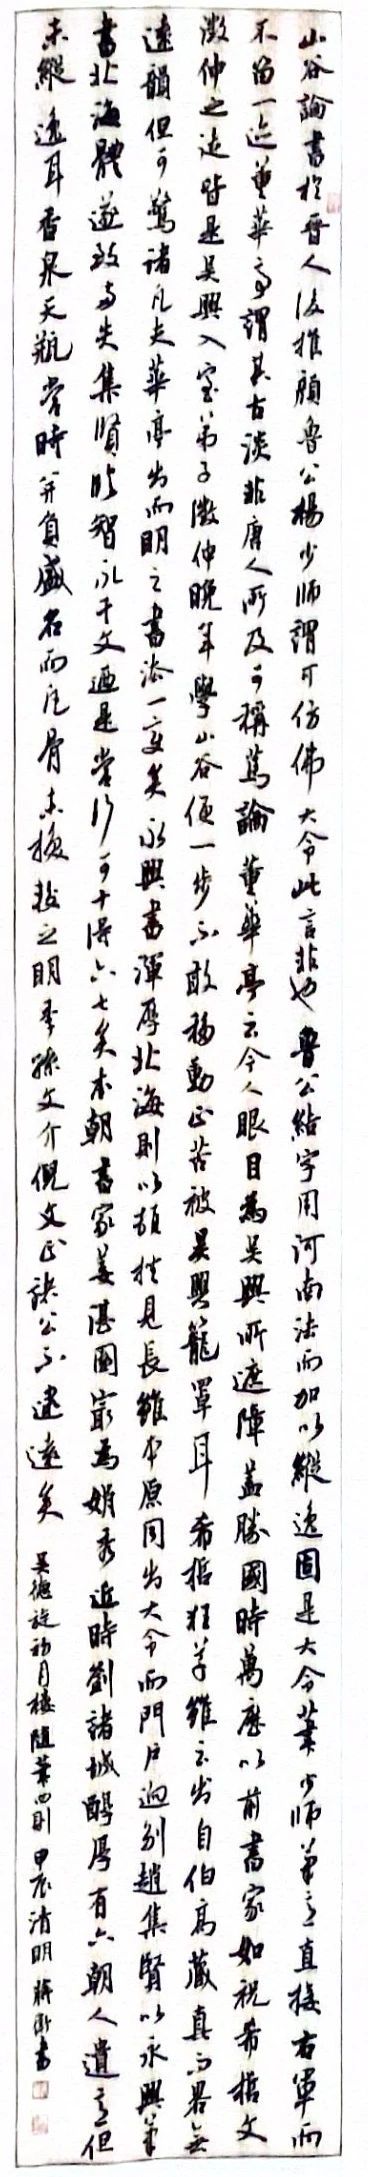 山谷論書於晉人後推顏魯公楊少師謂可仿佛大令此言非也魯公結字用河南法而加以縱逸固是大令筆少師筆意直接右軍而
不留一迹董華亭謂其古淡非唐人所及可稱篤論董華亭云今人眼目為吳興所遮障蓋勝國時萬歷以前書家如祝希哲文
徵仲之徒皆是吳興入室弟子徵仲晚年學山谷便一步不敢移動正苦被吳興籠罩耳希哲狂草雖云出自伯高藏真而畧無
遠韻但可驚諸凡夫華亭出而明之書法一變矣永興書渾厚北海則以頓挫見長雖本原同出大令而門戶迥別趙集賢以永興筆
書北海體遂致兩失集賢臨智永千文乃是當行可十得六七矣本朝書家姜湛園最為娟秀近時劉諸城醇厚有六朝人遺意但
未縱逸耳香泉天瓶當時并負盛名而凡骨未換較之明季孫文介倪文正諸公不逮遠矣
吳德旋初月樓隨筆四則 甲辰清明 蔣衡書